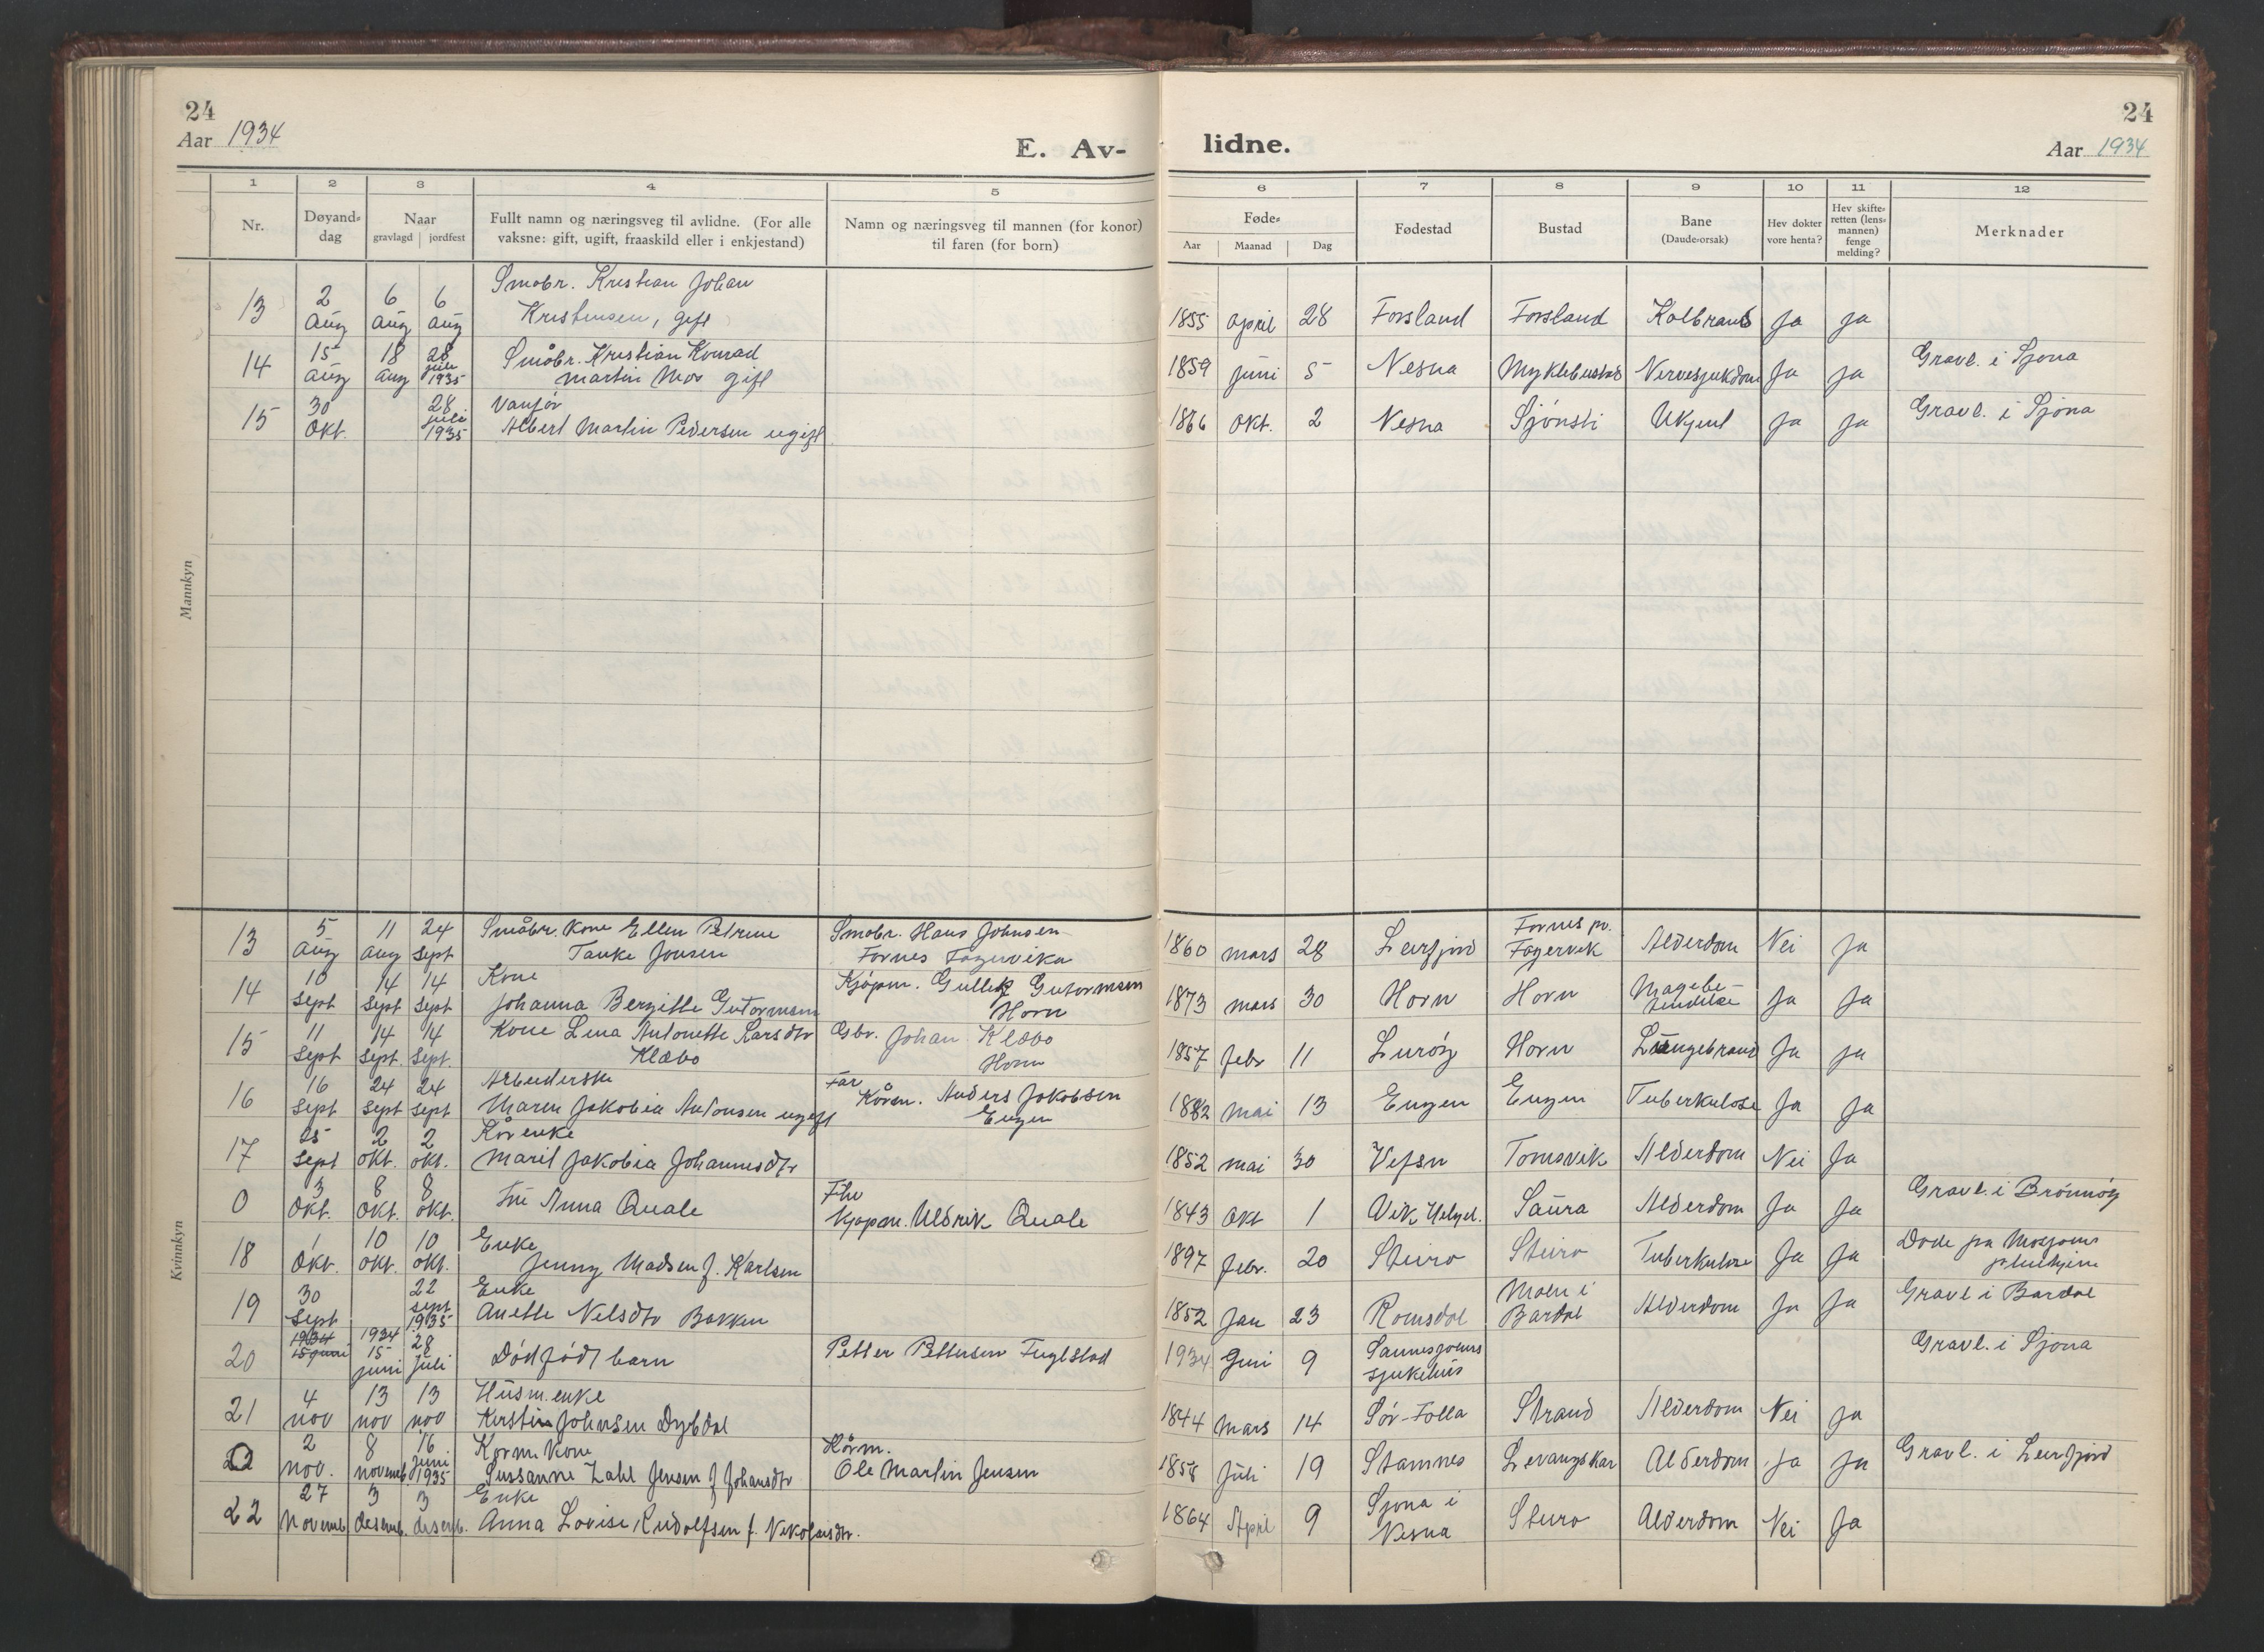 24
Aar 1934
E. Av-
lidne.
24
Aar 1934
1 2 3 4 5 6 7 8 9 10 11 12
Nr.
Døyand-dag
Naar
gravlagd | jordfest
Fullt namn og næringsveg til avlidne. (For alle
vaksne: gift, ugift, fraaskild eller i enkjestand)
Namn og næringsveg til mannen (for konor)
til faren (for born)
Føde-
Aar Maanad Dag
Fødestad
Bustad
Bane
(Daude-orsak)
Hev dokter
vore henta?
Hev skifte-
retten (lens-
mannen)
fenge
melding?
Merknader
Mannkyn
Småbr. Kristian Johan
13 2 aug 6 aug 6 aug Kristensen, gift 1855 april 28 Forsland Forsland Kolbrand Ja Ja
14 15 aug 18 aug 28 juli 1935 Småbr. Kristian Konrad
Martin Mos gift 1859 juni 5 Nesna Myklebustad Nervesjukdom Ja Ja Gravl. i Sjona
15 30 okt. 28 juli 1935 Vanfør
Albert Martin Pedersen ugift 1866 okt. 2 Nesna Sjónsti Ukjent Ja Ja Gravl. i Sjona
Kvinnkyn
13 5 aug 11 aug 24 sept Småbr. kone Ellen Petrine
Tanke Jonsen Småbr. Hans Johnsen
Fornes Fagervika 1860 mars 28 Leirfjord Fornes pr.
Fagervik Alderdom Nei Ja
14 10 sept 14 sept 14 sept Kone
Johanna Bergitte Gutormsen Kjøpm. Gullik Gutormsen
Horn 1873 mars 30 Horn Horn Magebe-
tendelse Ja Ja
15 11 sept 14 sept. 14 sept. Kone Lina Antonette Larsdtr
Klæbo Gbr. Johan Klæbo
Horn 1857 febr 11 Lurøy Horn Lungebrand Ja Ja
16 16 sept 24 sept 24 sept Arbeiderske
Maren Jakobia Antonsen ugift Far
Kårm. Anders Jakobsen
Engen 1882 mai 13 Engen Engen Tuberkulose Ja Ja
17 25 sept 2 okt. 2 okt. Kårenke
Marit Jakobia Johannesdtr 1852 mai 30 Vefsn Tomsvik Alderdom Nei Ja
0 3 okt. 8 okt. 8 okt. Frú Anna Quale Fhv
kjøpm. Uldrik Quale 1843 okt 1 Vik Helgel. Saura Alderdom Ja Ja Gravl. i Brönnöy
18 1 okt. 10 okt. 10 okt. Enke
Jenny Madsen f. Karlsen 1897 febr. 20 Steiro Steiro Tuberkulose Ja Ja Døde på Mosjøens
pleiehjem
19 30 sept 22 sept 1935 Enke
Anette Nelsdtr Bakken 1852 Jan 23 Romsdal Moen i
Bardal Alderdom Ja Ja Gravl i Bardal
20 1934 15 juni 1934 15 juni 28 juli Dódfódt barn Petter Pettersen Fuglstad 1934 Juni 9 Sannesjøens
sjukehús Gravl. i Sjona
21 4 nov 13 nov 13 nov Húsm. enke
Kirstin Johnsen Dybdal 1844 mars 14 Sór-Folla Strand Alderdom Nei Ja
22 2 nov. 8 novemb. 16 juni 1935 Korm. kone
Sussanne Zahl Jensen f Johansdtr Kårm.
Ole Martin Jensen 1858 Juli 19 Stamnes Levangskar Alderdom Ja Ja Gravl. i Leirfjord
22 27 novemb. 3 desemb. 3 desemb. Enke
Anna Lovise Rudolfsen f. Nikolaisdtr. 1864 April 9 Sjona i
Nesna Steiro Alderdom Nei Ja